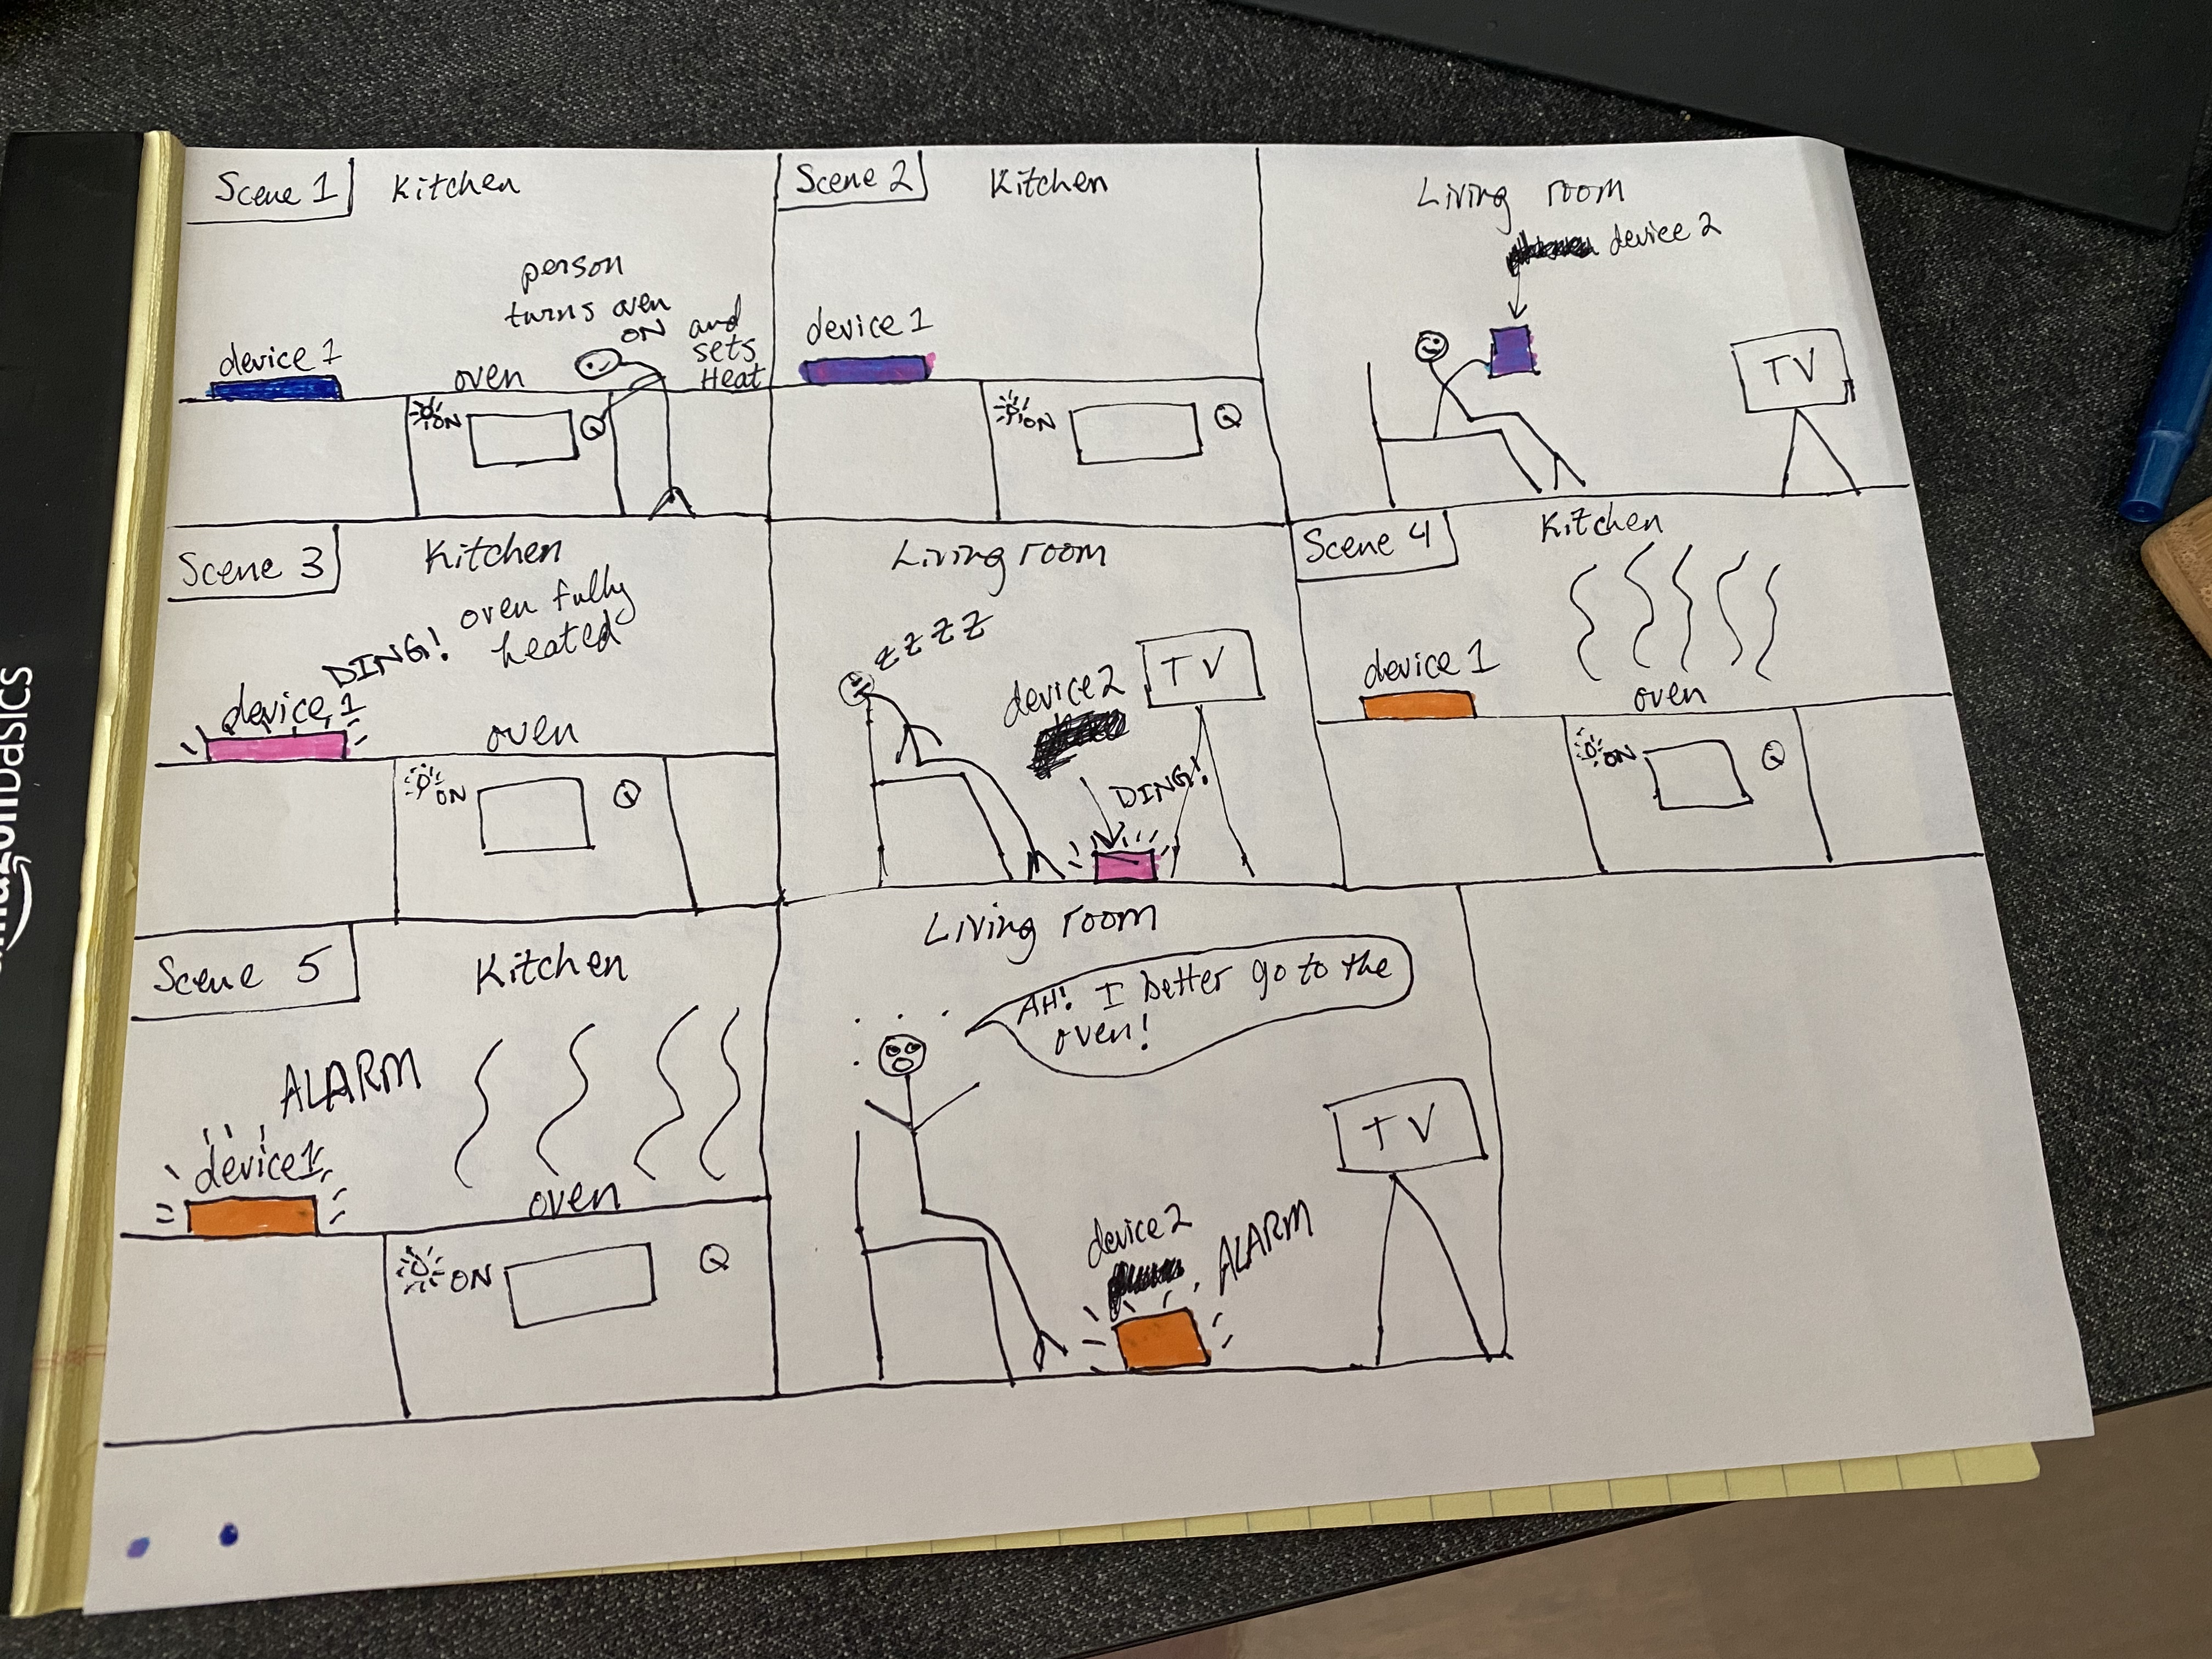 Scene 1
Kitchen
person
turns oven
ON
and
sets
Heat
device 1
oven
ON
Scene 2
Kitchen
device 1
ON
Living room
device 2
TV
Scene 3
Kitchen
DING!
oven fully
heated
device 1
oven
ON
Living room
zzzz
device 2
TV
DING!
Scene 4
Kitchen
device 1
oven
ON
Scene 5
Kitchen
ALARM
device 1
oven
ON
Living room
AH! I better go to the
oven!
TV
device 2
ALARM
amazonbasics